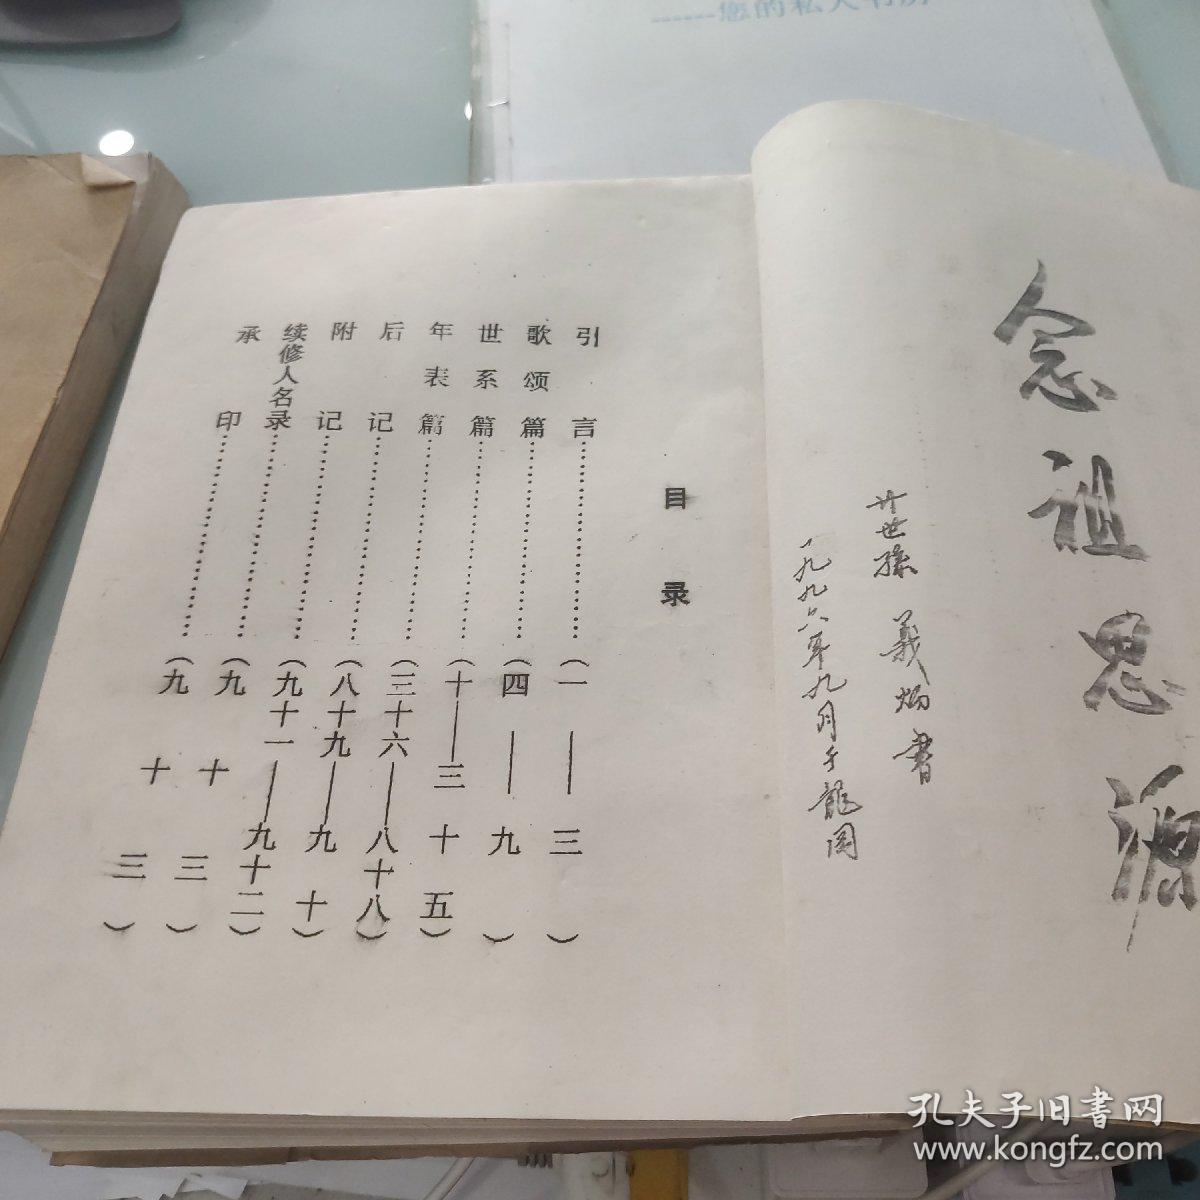 ------您的私人书房
念祖思源
廿世孫 義 書
一九九六年九月于龍岡
目录
引言………………(一——三)
歌颂篇………………(四——九)
世系篇………………(十——三十五)
年表篇………………(三十六——八十八)
后记………………(八十九——九十)
附记………………(九十一——九十二)
续修人名录………………(九十三)
承印………………(九十三)
孔夫子旧書网
www.kongfz.com